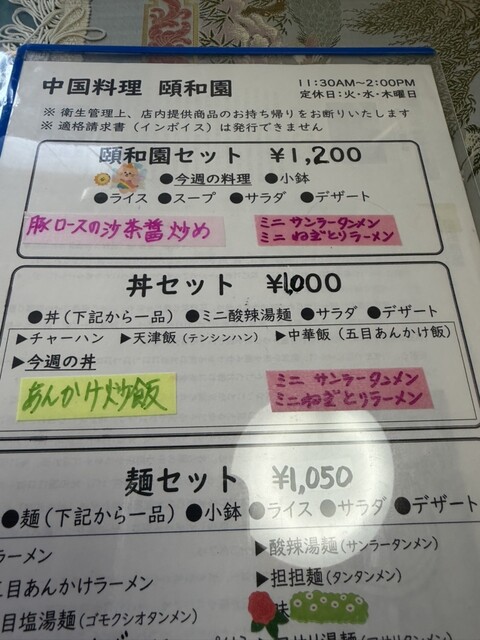 中国料理 頤和園
11:30AM～2:00PM
定休日：火・水・木曜日
※ 衛生管理上、店内提供商品のお持ち帰りをお断りいたします
※ 適格請求書（インボイス）は発行できません
頤和園セット ¥1,200
●今週の料理 ●小鉢
●ライス ●スープ ●サラダ ●デザート
豚ロースの沙茶醤炒め
ミニ サンラータンメン
ミニ ねぎとりラーメン
丼セット ¥1,000
●丼（下記から一品） ●ミニ酸辣湯麺 ●サラダ ●デザート
▶チャーハン ▶天津飯（テンシンハン） ▶中華飯（五目あんかけ飯）
▶今週の丼
あんかけ炒飯
ミニ サンラータンメン
ミニ ねぎとりラーメン
麺セット ¥1,050
●麺（下記から一品） ●小鉢 ●ライス ●サラダ ●デザート
ラーメン ▶酸辣湯麺（サンラータンメン）
目あんかけラーメン ▶担担麺（タンタンメン）
目塩湯麺（ゴモクシオタンメン） 味